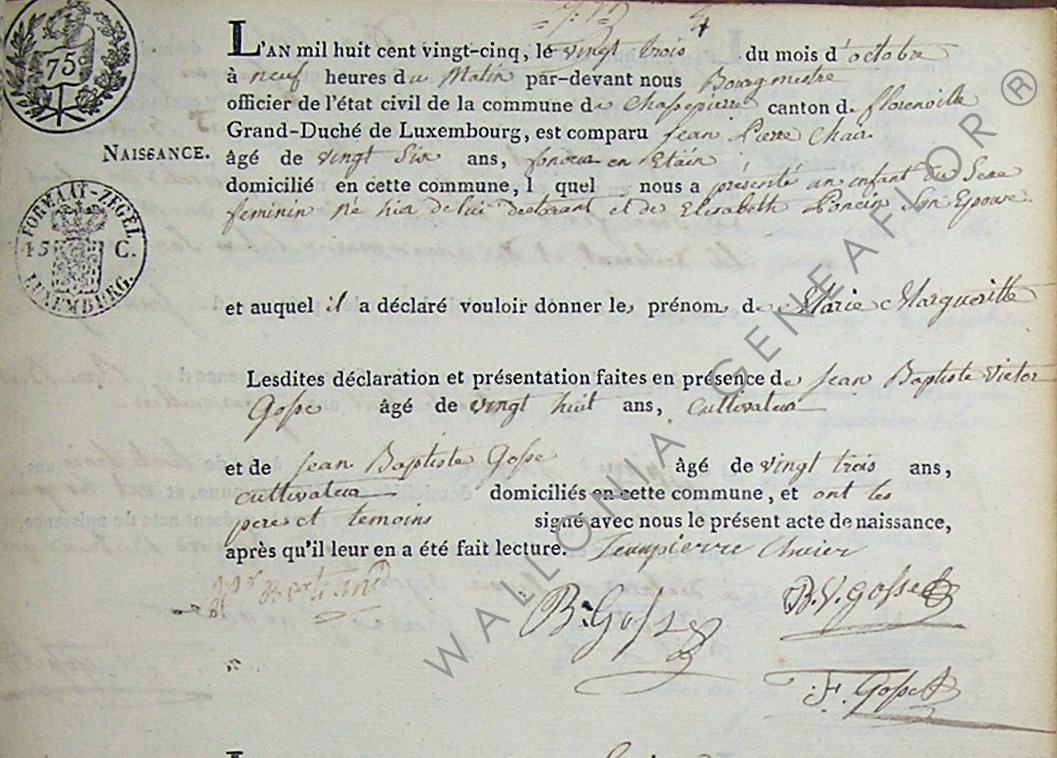 75
L'AN mil huit cent vingt-cinq, le vingt trois du mois d'octobre
à neuf heures du Matin par-devant nous Bourgmestre
officier de l'état civil de la commune de Chassepierre canton de florenville
Grand-Duché de Luxembourg, est comparu Jean Pierre
NAISSANCE.
âgé de vingt Six ans, fondeur en Etain
domicilié en cette commune, l quel nous a présenté un enfant du Sexe
feminin Né hier de lui declarant et de Elisabeth Poncin Son Epouse.
FORMAAT-ZEGEL
15 C.
LUXEMBURG.
et auquel il a déclaré vouloir donner les prénoms de Marie Margueritte
Lesdites déclaration et présentation faites en présence de Jean Baptiste Victor
Gosse âgé de vingt huit ans, Cultivateur
et de Jean Baptiste Gosse âgé de vingt trois ans,
cultivateur domiciliés en cette commune, et ont les
peres et temoins signé avec nous le présent acte de naissance,
après qu'il leur en a été fait lecture. Jeanpierre
Bertrand
B. Gosse
B.V. gosse
F. Gosse
WALLONIA GENEAFLOR ®